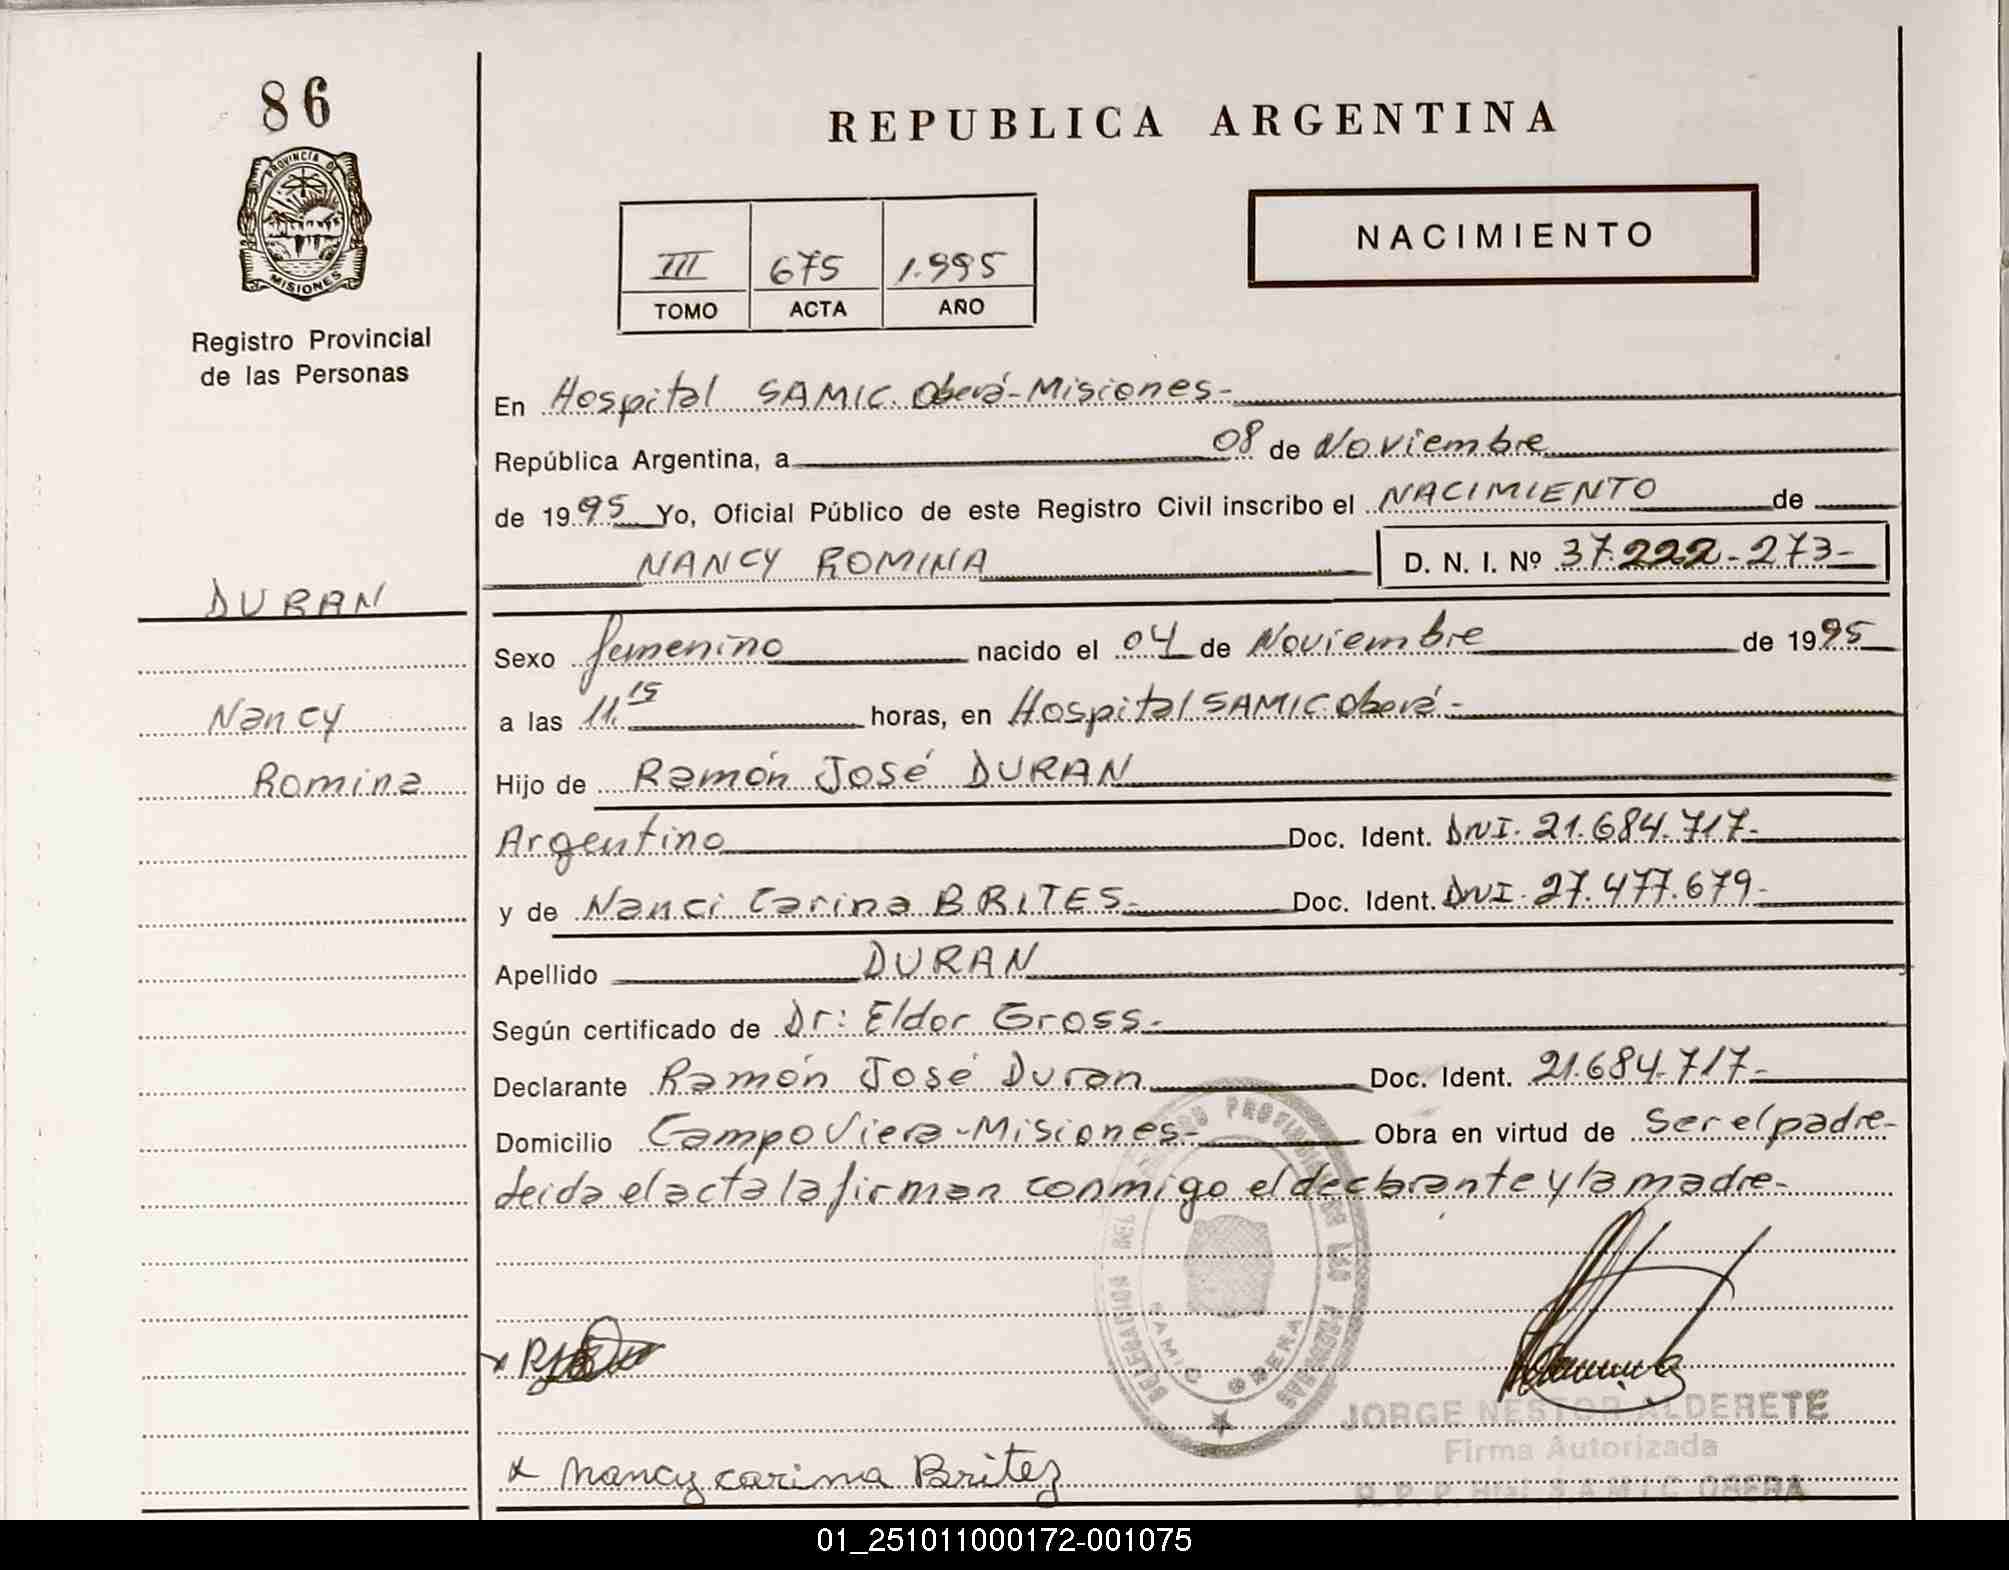 86
PROVINCIA DE
MISIONES
Registro Provincial
de las Personas
REPUBLICA ARGENTINA
NACIMIENTO
III 675 1.995
TOMO ACTA AÑO
En Hospital SAMIC. Oberá-Misiones-
República Argentina, a 08 de Noviembre
de 1995 Yo, Oficial Público de este Registro Civil inscribo el NACIMIENTO de
NANCY ROMINA D. N. I. Nº 37.222-273-
DURAN
Nancy
Romina
Sexo femenino nacido el 04 de Noviembre de 1995
a las 11.15 horas, en Hospital SAMIC Oberá-
Hijo de Ramón José DURAN
Argentino Doc. Ident. DNI. 21.684.717-
y de Nanci Carina BRITES- Doc. Ident. DNI. 27.477.679-
Apellido DURAN
Según certificado de Dr: Eldor Gross-
Declarante Ramón José Duran Doc. Ident. 21.684.717-
Domicilio Campo Viera-Misiones- Obra en virtud de ser el padre-
leida el acta la firman conmigo el declarante y la madre-
REGISTRO PROVINCIAL DE LAS PERSONAS
DELEGACION
SAMIC OBERA
JORGE NESTOR ALDERETE
Firma Autorizada
R. P. P. Htal S.A.M.I.C OBERA
x Nancy carina Britez
01_251011000172-001075